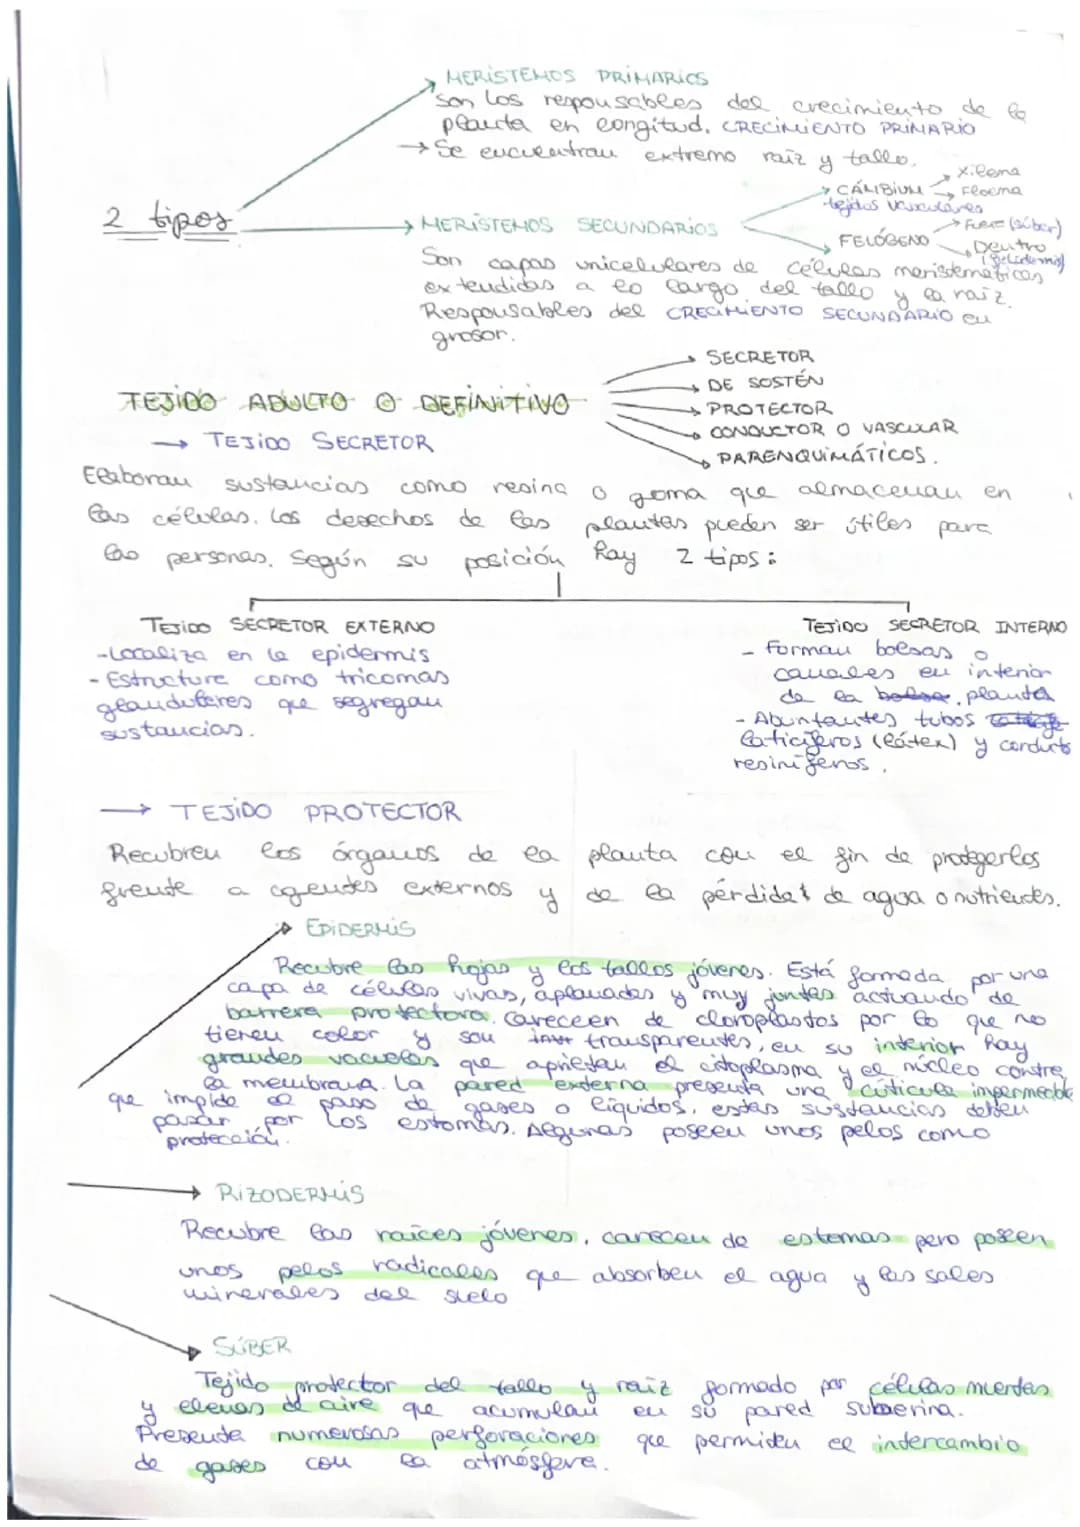 MERISTEMOS PRIMARIOS
Son los responsables del crecimiento de la
planta en longitud. CRECIMIENTO PRIMARIO
→ Se encuentran extremo raíz y tallo.
2 tipos
MERISTEMOS SECUNDARIOS
CÁMBIUM
tejidos vasculares
Xilema
Floema
FELÓGENO
Fuera (súber)
Dentro
(felodermis)
Son capas unicelulares de células meristemáticas
extendidas a lo largo del tallo y la raíz.
Responsables del CRECIMIENTO SECUNDARIO en
grosor.
TEJIDO ADULTO O DEFINITIVO
SECRETOR
DE SOSTÉN
PROTECTOR
CONDUCTOR O VASCULAR
PARENQUIMÁTICOS.
→ TEJIDO SECRETOR
Elaboran sustancias como resina o goma que almacenan en
las células. Los desechos de las plantas pueden ser útiles para
las personas. Según su posición hay 2 tipos:
TEJIDO SECRETOR EXTERNO
-Localiza en la epidermis
-Estructura como tricomas
glandulares que segregan
sustancias.
TEJIDO SECRETOR INTERNO
- Forman bolsas o
canales en interior
de la bolsa. planta
- Abuntantes tubos
laticíferos (látex) y conductos
resiníferos.
→ TEJIDO PROTECTOR
Recubren los órganos de la planta con el fin de protegerlos
frente a agentes externos y de la pérdida de agua o nutrientes.
EPIDERMIS
Recubre las hojas y los tallos jóvenes. Está formada por una
capa de células vivas, aplanadas y muy juntas actuando de
barrera protectora. Careceen de cloroplastos por lo que no
tienen color y son transparentes, en su interior hay
grandes vacuolas que aprietan el citoplasma y el núcleo contra
la membrana. La pared externa presenta una cutícula impermeable
que impide el paso de gases o líquidos, estas sustancias deben
pasar por los estomas. Algunas poseen unos pelos como
protección.
→ RIZODERMIS
Recubre las raíces jóvenes, carecen de estomas pero poseen
unos pelos radicales que absorben el agua y las sales
minerales del suelo
SÚBER
Tejido protector del tallo y raíz formado por células muertas
y llenas de aire que acumulan en su pared suberina.
Presenta numerosas perforaciones que permiten el intercambio
de gases con la atmósfera.